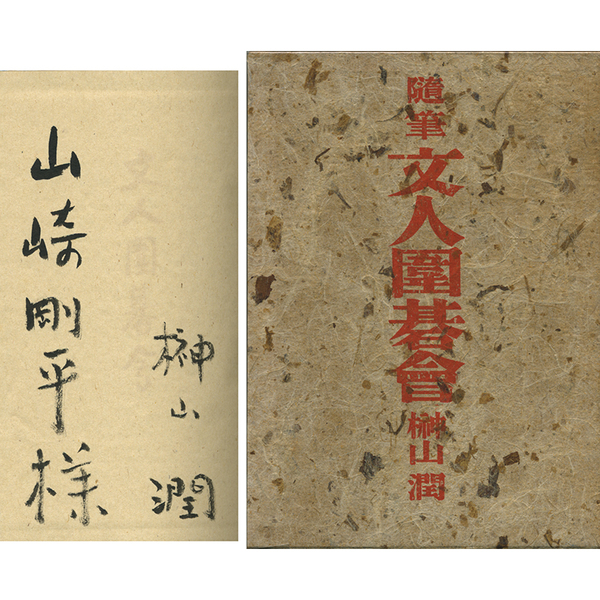 山崎剛平様
榊山潤
随筆
文人圍碁會
榊山潤